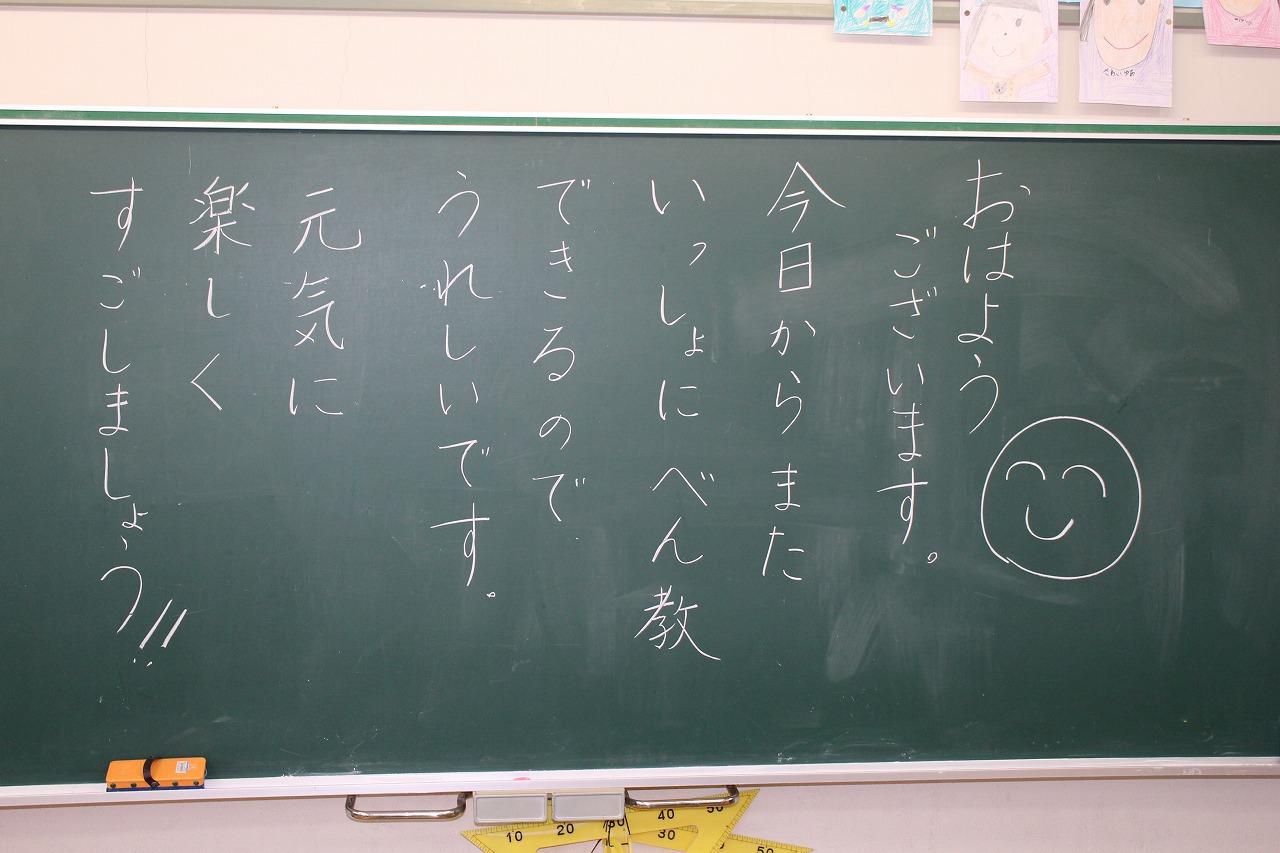 おはよう
ございます。
今日からまた
いっしょにべん教
できるので
うれしいです。
元気に
楽しく
すごしましょう!!
10 20 30 40 50
30
50